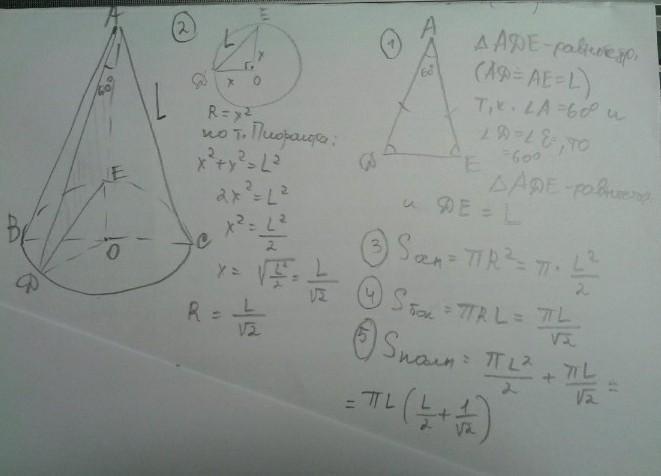 A
60°
L
E
B
O
C
D
②
E
L
x
D
x
O
R = x²
по т. Пифагора:
x² + x² = L²
2x² = L²
x² = L²/2
x = √(L²/2) = L/√2
R = L/√2
①
A
60°
D
E
△ADE - равнобедр.
(AD = AE = L)
т.к. ∠A = 60° и
∠D = ∠E, то
= 60°
△ADE - равностор.
и DE = L
③ Sосн = πR² = π · L²/2
④ Sбок = πRL = πL/√2
⑤ Sполн = πL²/2 + πL/√2 =
= πL (L/2 + 1/√2)